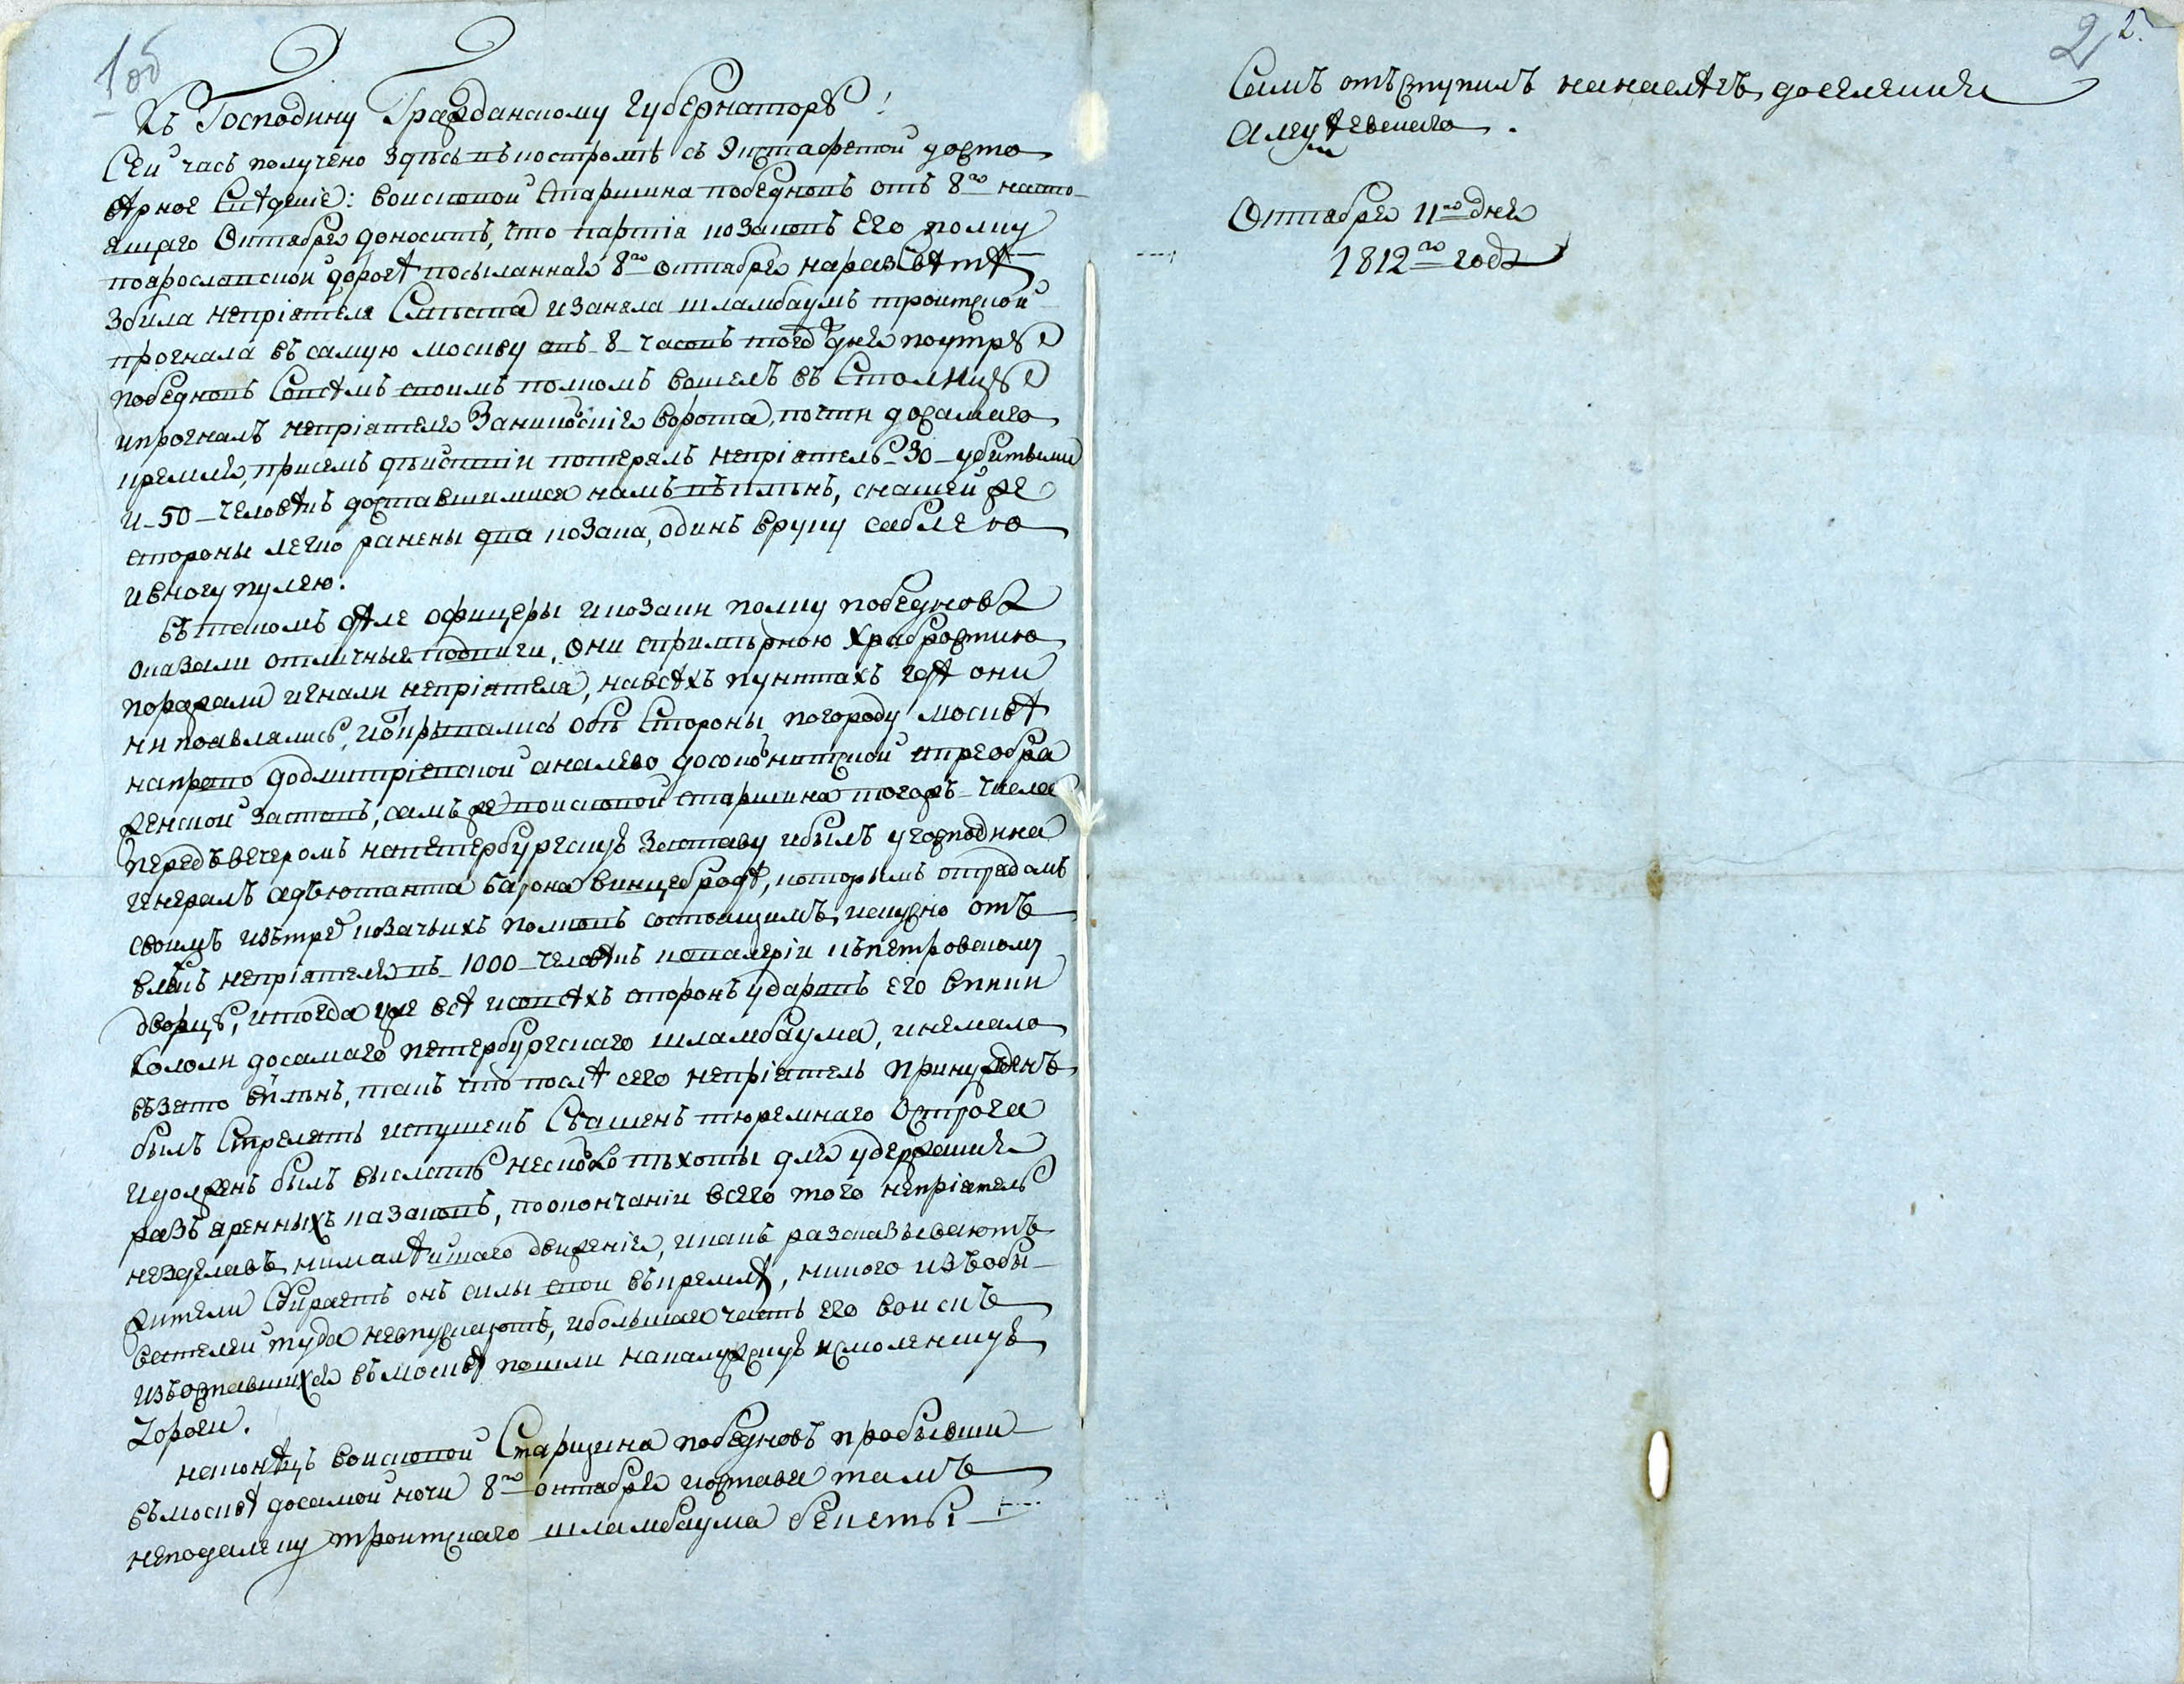 1об
Къ Господину Гражданскому Губернатору!
Сей часъ получено здѣсь въ костромѣ съ Эистафетой досто
вѣрное Свѣдение: воисковой Старшина победновъ отъ 8го насто-
ящаго Октября доноситъ, что партіа козаковъ Его полку
поярославской дорогѣ посыланная 8го октября наразсвѣтѣ
збила непріятеля Смѣста изаняла шламбаумъ троитской
прогнала въ самую москву авъ 8 часовъ того дня поутру
победновъ Совсѣмъ своимъ полкомъ вошелъ въ Столицу
ипрогналъ непріятеля Заникольскіе ворота, почти досамаго
кремля, присемъ дѣиствіи потерялъ непріятель 30 убитыми
и 50 человѣкъ доставшимися намъ въ плѣнъ, снашей же
стороны легко ранены два козака, одинъ вруку саблею
ивногу пулею.
Въ такомъ дѣле офицеры икозаки полку победнова
оказали отличныя подвиги, они спримѣрною храбростию
поражали игнали непріятеля, навсѣхъ пунктахъ гдѣ они
ни появлялись, ибо прытались обѣ Стороны погороду москвѣ
направо додмитріевской аналево досокольнитской ипреобра
женской заставъ, самъ же воисковой старшина тогожъ числа
передъ вечеромъ напетербургскую Заставу ибылъ угосподина
генералъ адъютанта барона винцеброде, которымъ отрядомъ
своимъ изътрехъ козачьихъ полковъ состоящимъ, искусно отъ
влекъ непріятеля въ 1000 человѣкъ кавалеріи къ петровскому
дворцу, итогда уже всѣ исовсѣхъ сторонъ ударивъ его впики
кололи досамаго петербургскаго шламбаума, инемало
възято въ плѣнъ, такъ что послѣ сего непріятель принужденъ
былъ Стрелять испушекъ Съашень тюремнаго Острога
идолженъ былъ выслать несколько пѣхоты для удержания
разъяренныхъ казаковъ, поокончаніи всего того непріятель
незделавъ нималѣишаго движеніе, икакъ разсказываютъ
жители Сбираетъ онъ силы свои въкремлѣ, никого изъобы-
вателеи туда невпускаютъ, ибольшая часть его воискъ
изъоставшихся въмосквѣ пошли накалужскую исмоленскую
дороги.
наконѣцъ воисковой Старшина победновъ пробывши
въмосквѣ досамой ночи 8го октября иоставя тамъ
неподалеку троитскаго шламбаума бекеты
2 2.
Самъ отъступилъ наначлегъ доселения
алексѣевскаго.
Октября 11го дня
1812го года